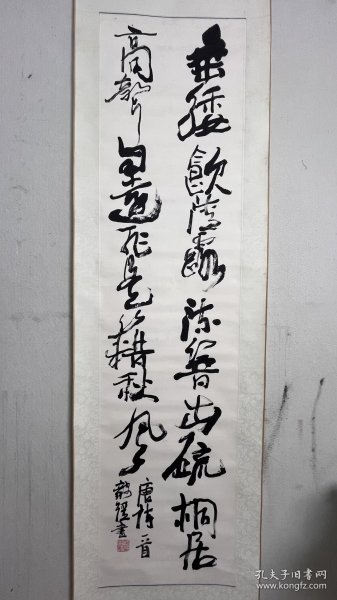 垂緌飲清露流響出疏桐居
高聲自遠非是藉秋風
唐詩一首
書
孔夫子旧书网